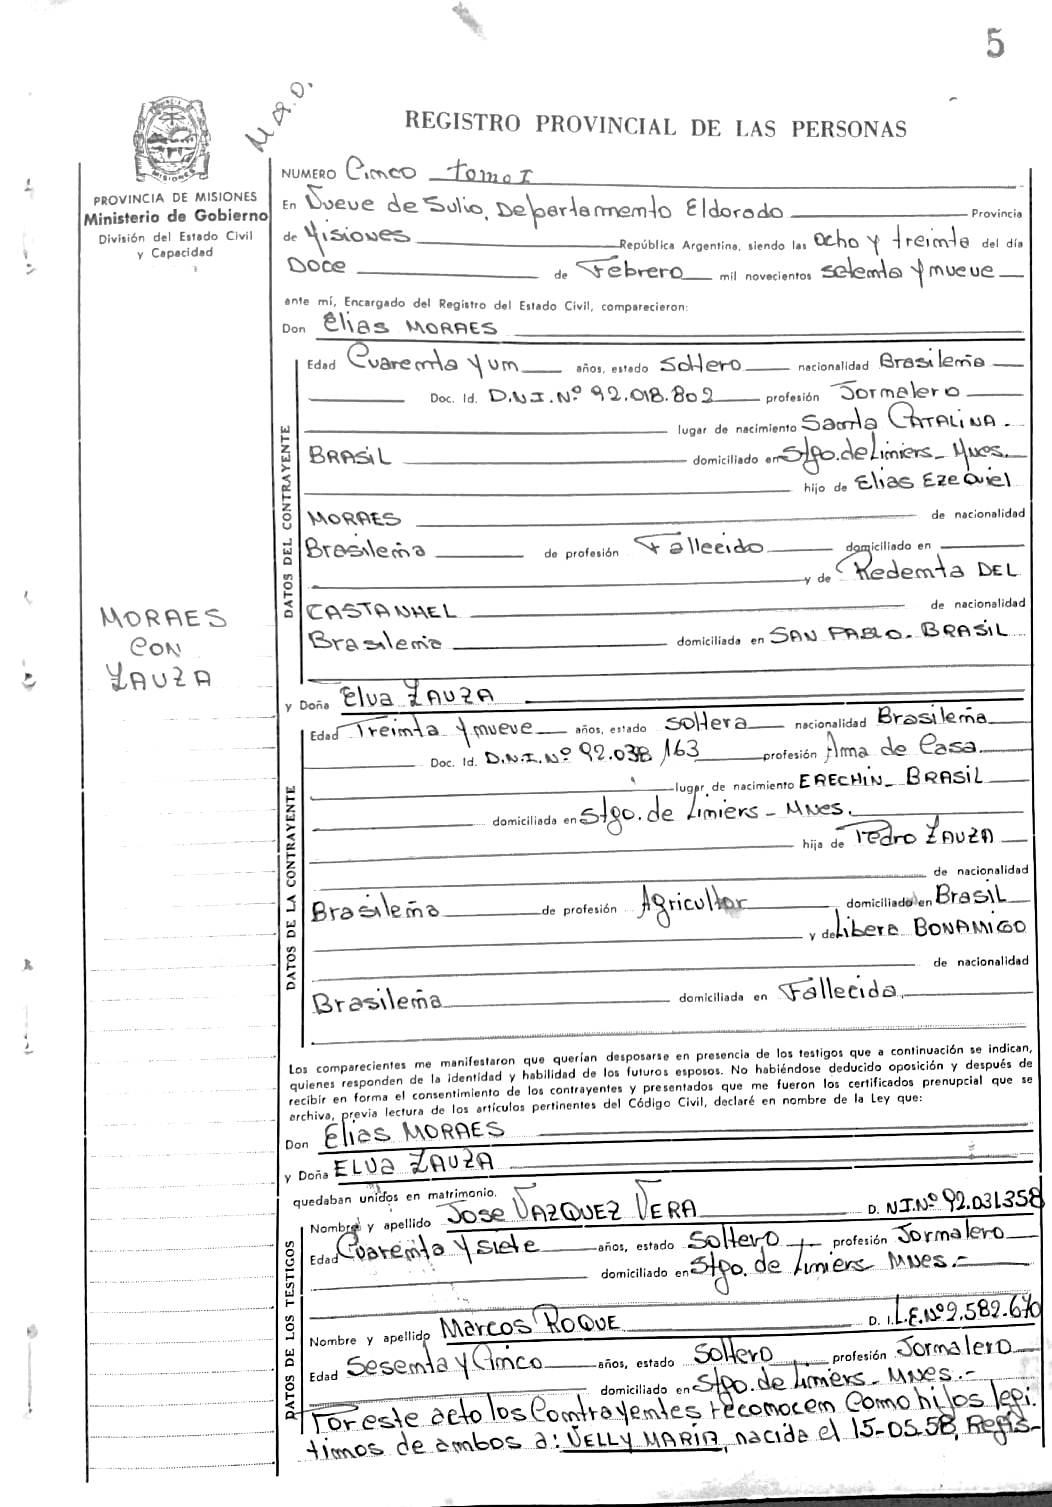 5
M.O.
REGISTRO PROVINCIAL DE LAS PERSONAS
PROVINCIA DE MISIONES
Ministerio de Gobierno
División del Estado Civil
y Capacidad
MORAES
CON
ZAUZA
NUMERO Cinco tomo I
En Nueve de Julio, Departamento Eldorado Provincia
de Misiones República Argentina, siendo las ocho y treinta del día
Doce de Febrero mil novecientos setenta y nueve
ante mí, Encargado del Registro del Estado Civil, comparecieron:
Don Elias MORAES
DATOS DEL CONTRAYENTE
Edad Cuarenta y un años, estado soltero nacionalidad Brasileña
Doc. Id. D.N.I. Nº 92.018.802 profesión Jornalero
lugar de nacimiento Santa CATALINA -
BRASIL domiciliado en Stgo. de Liniers - Mnes.
hijo de Elias EZEQUIEL
MORAES de nacionalidad
Brasileña de profesión Fallecido domiciliado en
y de Redenta DEL
CASTANHEL de nacionalidad
Brasileña domiciliada en SAN PABLO - BRASIL
y Doña Elva ZAUZA
DATOS DE LA CONTRAYENTE
Edad Treinta y nueve años, estado soltera nacionalidad Brasileña
Doc. Id. D.N.I. Nº 92.038.163 profesión Ama de Casa
lugar de nacimiento ERECHIN - BRASIL
domiciliada en Stgo. de Liniers - Mnes.
hija de Pedro ZAUZA
de nacionalidad
Brasileña de profesión Agricultor domiciliado en Brasil
y de Libera BONAMIGO
de nacionalidad
Brasileña domiciliada en Fallecida
Los comparecientes me manifestaron que querían desposarse en presencia de los testigos que a continuación se indican,
quienes responden de la identidad y habilidad de los futuros esposos. No habiéndose deducido oposición y después de
recibir en forma el consentimiento de los contrayentes y presentados que me fueron los certificados prenupcial que se
archiva, previa lectura de los artículos pertinentes del Código Civil, declaré en nombre de la Ley que:
Don Elias MORAES
y Doña ELVA ZAUZA
quedaban unidos en matrimonio.
DATOS DE LOS TESTIGOS
Nombre y apellido Jose VAZQUEZ VERA D. N.I. Nº 92.031.358
Edad Cuarenta y siete años, estado soltero profesión Jornalero
domiciliado en Stgo. de Liniers Mnes. -
Nombre y apellido Marcos ROQUE D. I. L.E. Nº 2.582.670
Edad Sesenta y Cinco años, estado soltero profesión Jornalero
domiciliado en Stgo. de Liniers - Mnes. -
Por este acto los Contrayentes reconocen como hijos legi
timos de ambos a: NELLY MARIA, nacida el 15-05-58, Regis-